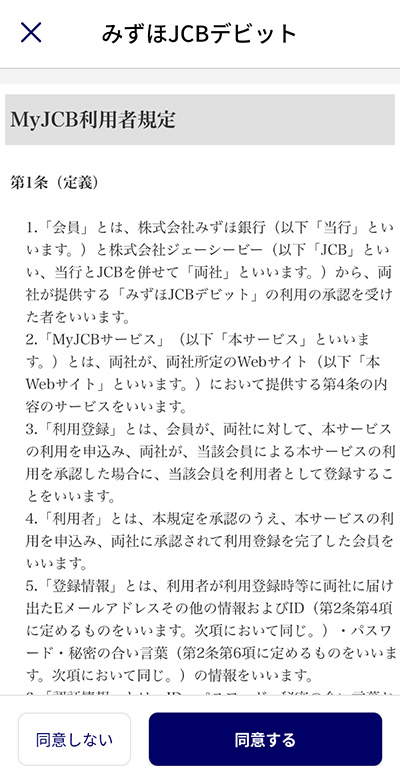 みずほJCBデビット
MyJCB利用者規定
第1条（定義）
1.「会員」とは、株式会社みずほ銀行（以下「当行」とい
います。）と株式会社ジェーシービー（以下「JCB」とい
い、当行とJCBを併せて「両社」といいます。）から、両
社が提供する「みずほJCBデビット」の利用の承認を受け
た者をいいます。
2.「MyJCBサービス」（以下「本サービス」といいま
す。）とは、両社が、両社所定のWebサイト（以下「本
Webサイト」といいます。）において提供する第4条の内
容のサービスをいいます。
3.「利用登録」とは、会員が、両社に対して、本サービス
の利用を申込み、両社が、当該会員による本サービスの利
用を承認した場合に、当該会員を利用者として登録するこ
とをいいます。
4.「利用者」とは、本規定を承認のうえ、本サービスの利
用を申込み、両社に承認されて利用登録を完了した会員を
いいます。
5.「登録情報」とは、利用者が利用登録時等に両社に届け
出たEメールアドレスその他の情報およびID（第2条第4項
に定めるものをいいます。次項において同じ。）・パスワ
ード・秘密の合い言葉（第2条第6項に定めるものをいいま
す。次項において同じ。）の情報をいいます。
同意しない
同意する